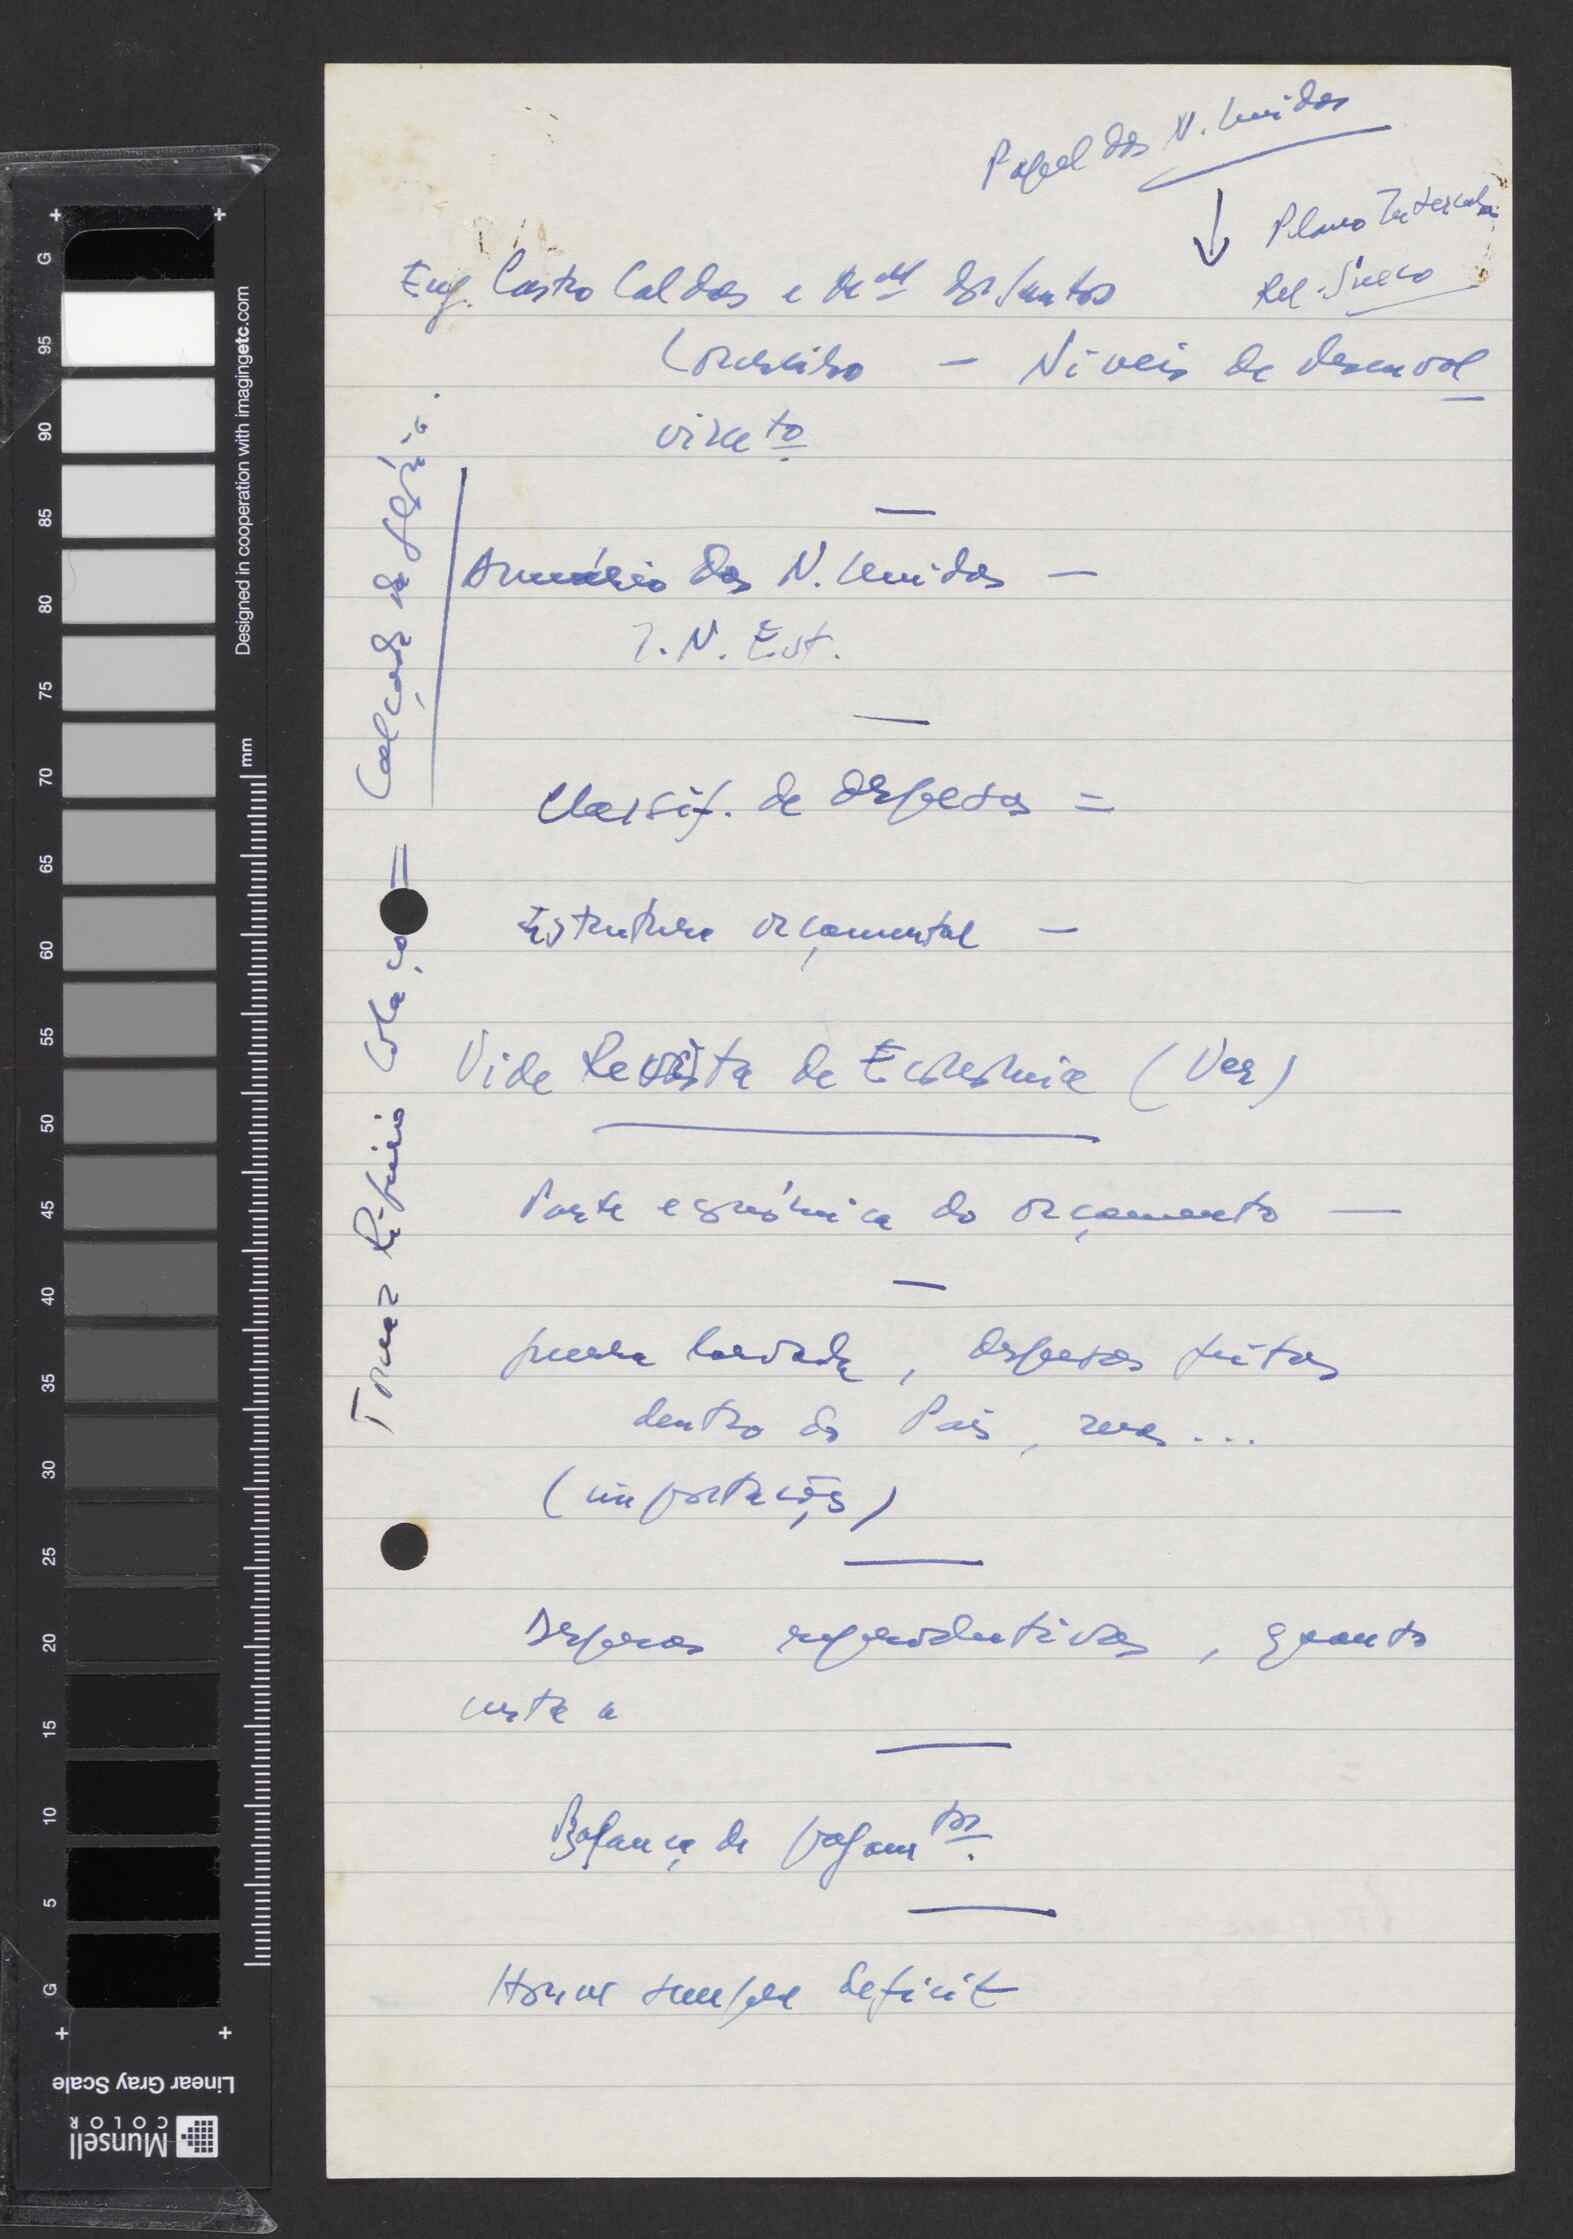 Papel das N. Unidas
Plano Intercalar
Rel. Sueco
Eng. Castro Caldas e dos Santos
Loureiro — Níveis de desenvol
vimto
Anuário das N. Unidas —
I. N. Est.
Classif. de despesas =
Estrutura orçamental —
Vide Revista de Economia (Ver)
Parte económica do orçamento —
guerra , despesas feitas
dentro do País, mas...
(importações)
Despesas reprodutivas, quanto
custa a
Balança de pagamtos.
Houve sempre deficit
Tomaz Ribeiro Colaço = Calçada da Glória.
G
95
90
85
80
75
70
65
60
55
50
45
40
35
30
25
20
15
10
5
G
Designed in cooperation with imagingetc.com
mm
Linear Gray Scale
Munsell
COLOR